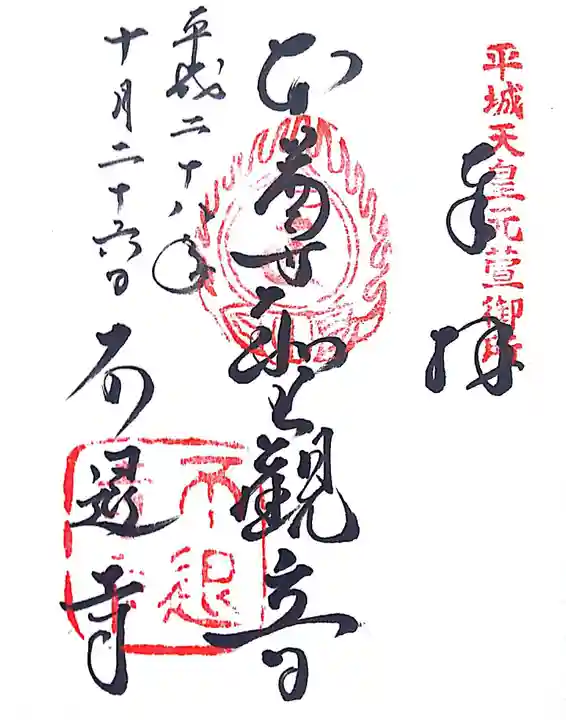 平城天皇元萱御所
奉拝
本尊聖観世音
平成二十八年
十月二十六日
不退寺
不退